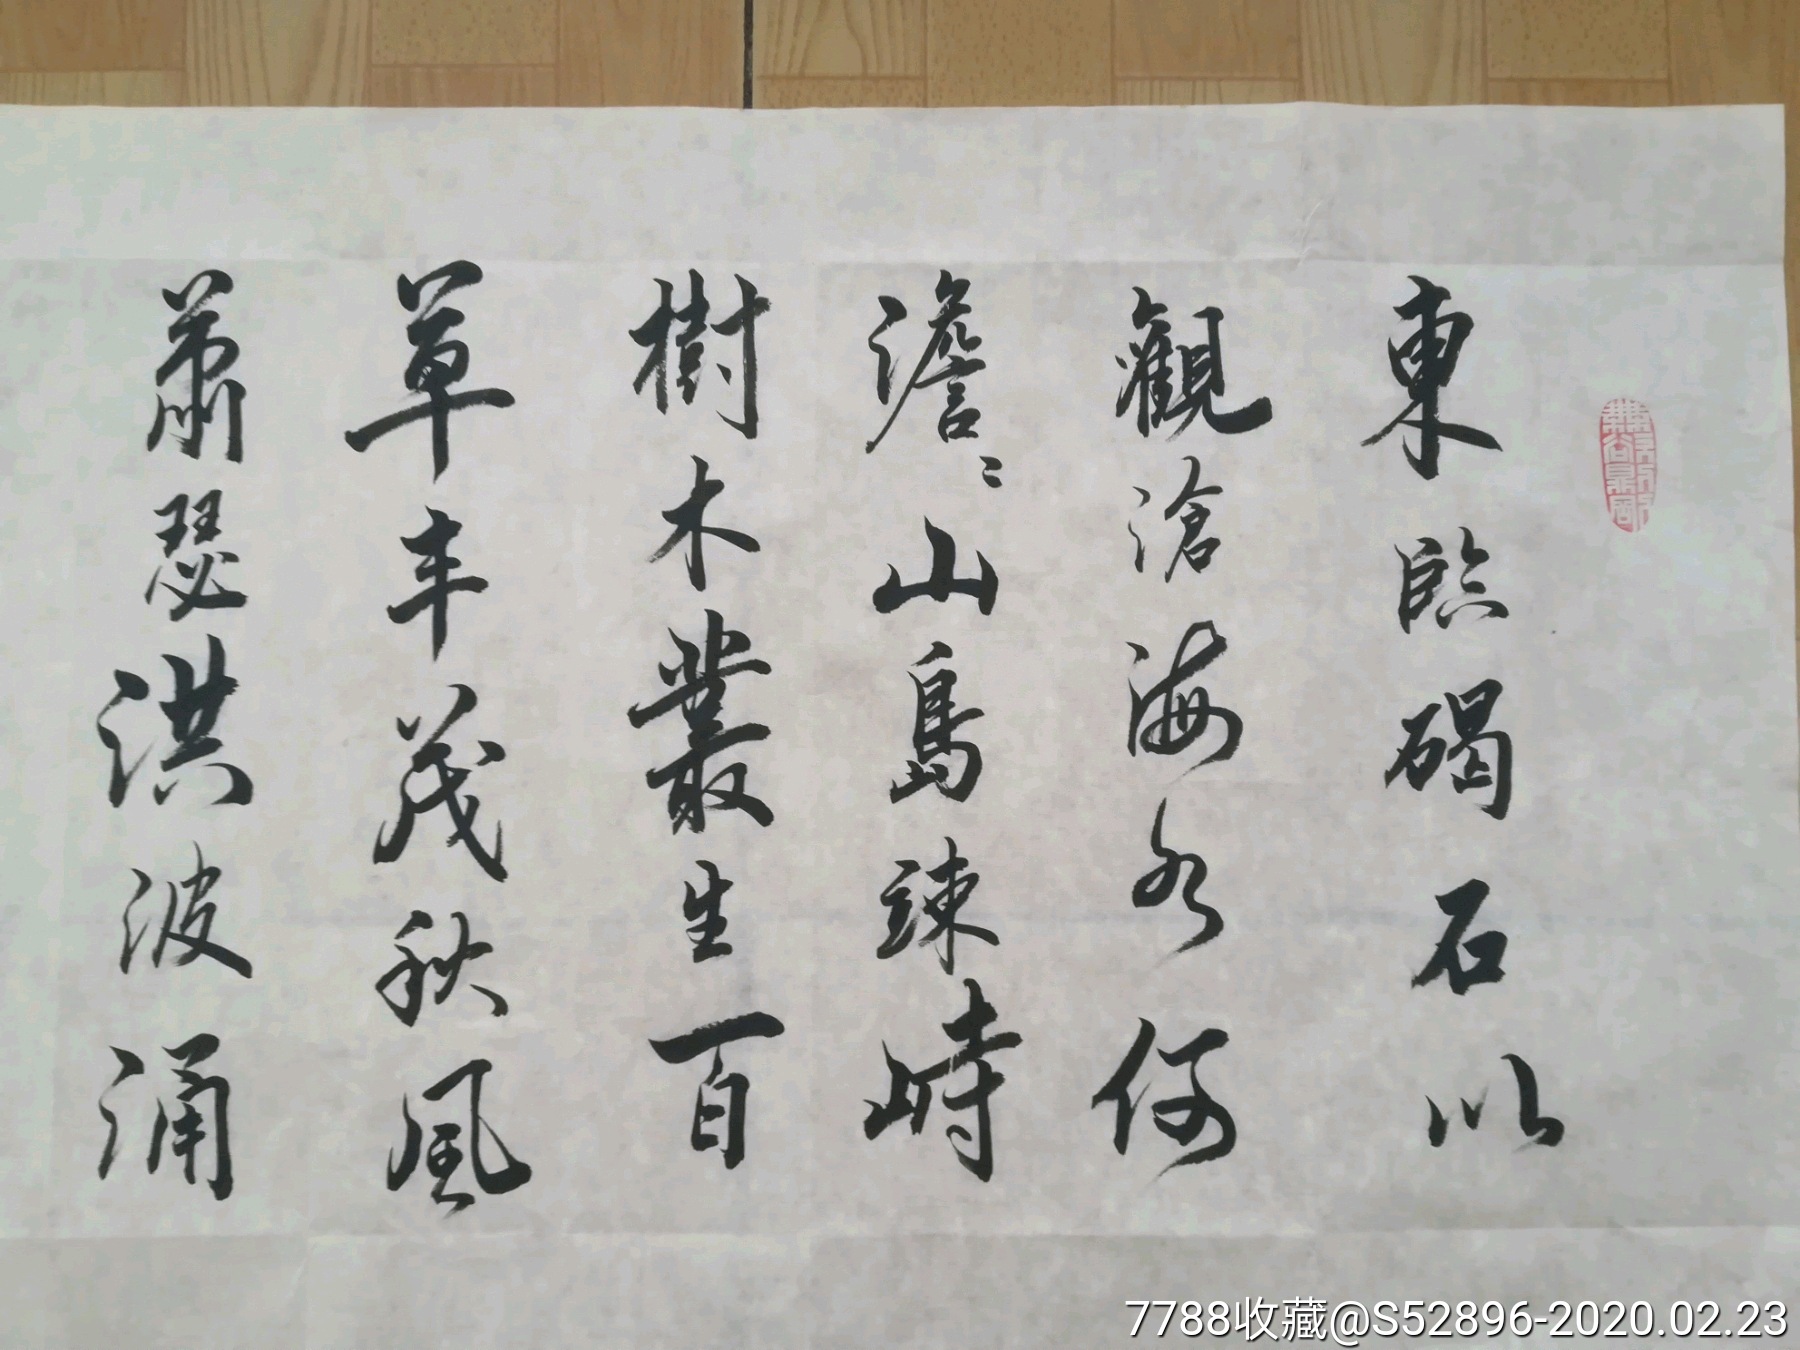 東臨碣石以
觀滄海水何
澹〻山島竦峙
樹木叢生百
草丰茂秋風
蕭瑟洪波涌
7788收藏@S52896-2020.02.23